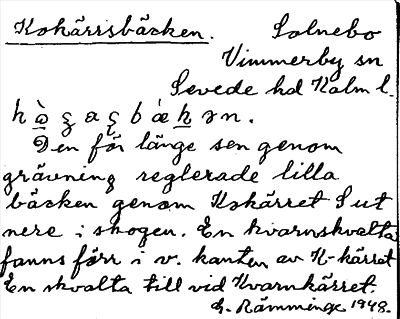 Kokärrsbäcken. Solnebo
Vimmerby sn
Sevede hd Kalm l.
Den för länge sen genom
grävning reglerade lilla
bäcken genom Kokärret S ut
nere i skogen. En kvarnskvalta
fanns förr i v. kanten av K-kärret
En skvalta till vid Kvarnkärret.
G. Rämminge 1948.